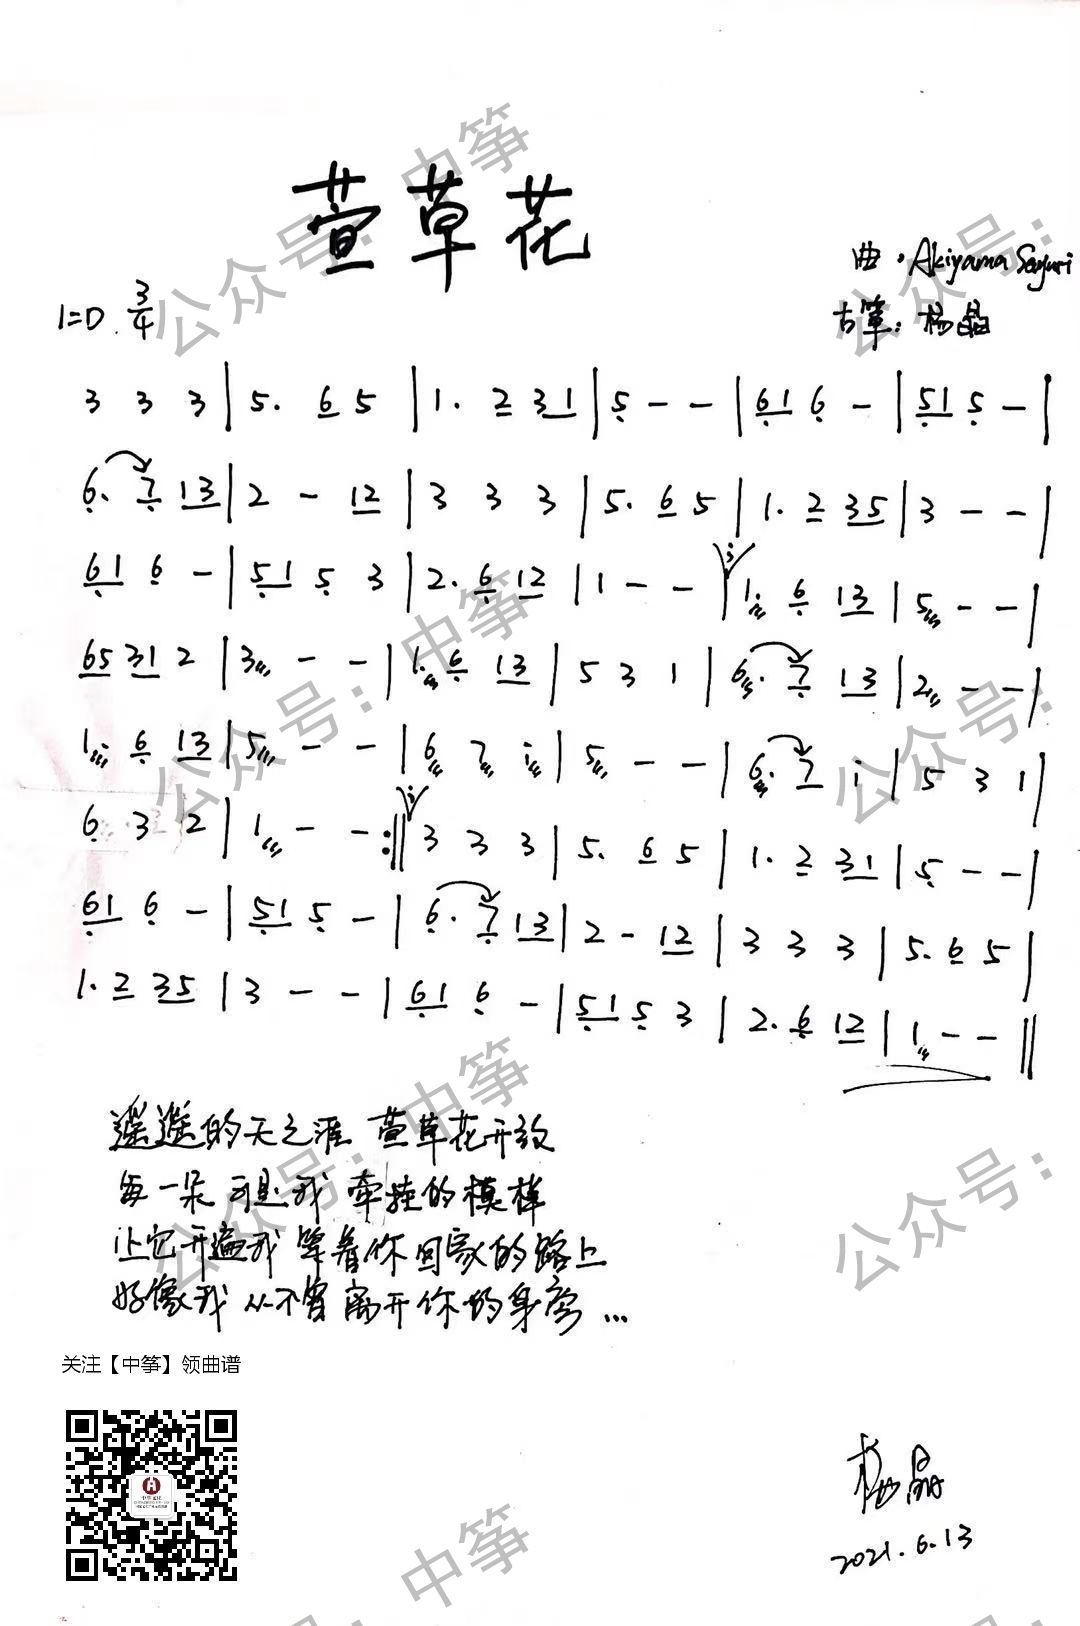 萱草花
曲：Akiyama Sayuri
1=D 3/4
古筝：杨晶
3 3 3 | 5. 6 5 | 1. 2 3 1 | 5 - - | 6 1 6 - | 5 1 5 - |
6. 7 1 3 | 2 - 1 2 | 3 3 3 | 5. 6 5 | 1. 2 3 5 | 3 - - |
6 1 6 - | 5 1 5 3 | 2. 6 1 2 | 1 - - | i 1. 6 1 3 | 5 - - |
6 5 3 1 2 | 3 - - | 1. 6 1 3 | 5 3 1 | 6. 7 1 3 | 2 - - |
1. 6 1 3 | 5 - - | 6 7 i | 5 - - | 6. 7 i | 5 3 1 |
6 3 2 | 1 - - :|| i 3 3 3 | 5. 6 5 | 1. 2 3 1 | 5 - - |
6 1 6 - | 5 1 5 - | 6. 7 1 3 | 2 - 1 2 | 3 3 3 | 5. 6 5 |
1. 2 3 5 | 3 - - | 6 1 6 - | 5 1 5 3 | 2. 6 1 2 | 1 - - ||
遥遥的天之涯 萱草花开放
每一朵可是我 牵挂的模样
让它开遍我 等着你回家的路上
好像我从不曾离开你的身旁 ...
关注【中筝】领曲谱
杨晶
2021.6.13
公众号：中筝
公众号：中筝
公众号：中筝
公众号：
公众号：
公众号：